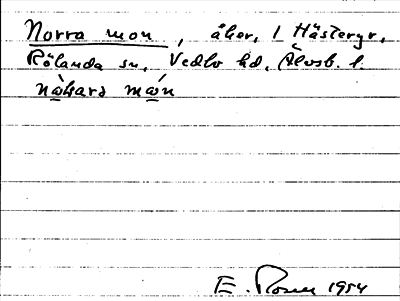 Norra mon, åker, 1 Hästeryr,
Rölanda sn, Vedbo hd, Älvsb. l.
nòhara món
E. Rosell 1954